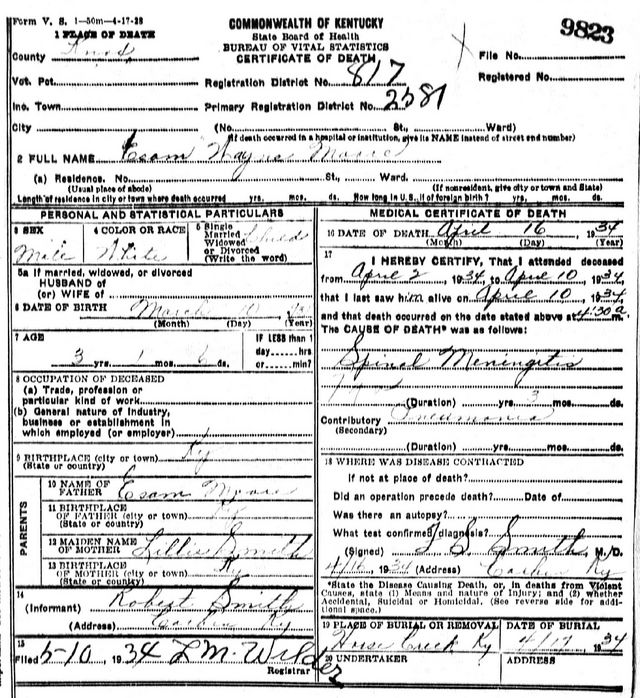 Form V. S. 1—50m—4-17-28
1 PLACE OF DEATH
County Knox
Vot. Pct.
Inc. Town
City
COMMONWEALTH OF KENTUCKY
State Board of Health
BUREAU OF VITAL STATISTICS
CERTIFICATE OF DEATH
9823
File No.
Registration District No. 817
Registered No.
Primary Registration District No. 2581
(No. St., Ward)
(If death occurred in a hospital or institution, give its NAME instead of street and number)
2 FULL NAME Esam Wayne Moore
(a) Residence. No. St., Ward.
(Usual place of abode) (If nonresident, give city or town and State)
Length of residence in city or town where death occurred yrs. mos. ds. How long in U. S., if of foreign birth? yrs. mos. ds.
PERSONAL AND STATISTICAL PARTICULARS
3 SEX
Male
4 COLOR OR RACE
White
5 Single
Married
Widowed
or Divorced
(Write the word)
Child
5a If married, widowed, or divorced
HUSBAND of
(or) WIFE of
6 DATE OF BIRTH March 10
(Month) (Day) (Year)
7 AGE
3 yrs. 1 mos. 6 ds.
IF LESS than 1
day hrs
or min?
8 OCCUPATION OF DECEASED
(a) Trade, profession or
particular kind of work
(b) General nature of industry,
business or establishment in
which employed (or employer)
9 BIRTHPLACE (city or town) Ky
(State or country)
PARENTS
10 NAME OF
FATHER Esam Moore
11 BIRTHPLACE
OF FATHER (city or town) Ky
(State or country)
12 MAIDEN NAME
OF MOTHER Lillie Smith
13 BIRTHPLACE
OF MOTHER (city or town) Ky
(State or country)
14
(Informant) Robert Smith
(Address) Ky
15
Filed 5-10, 1934 L M. Wilder
Registrar
MEDICAL CERTIFICATE OF DEATH
16 DATE OF DEATH April 16 1934
(Month) (Day) (Year)
17
I HEREBY CERTIFY, That I attended deceased
from April 2, 1934, to April 10, 1934
that I last saw him alive on April 10, 1934,
and that death occurred on the date stated above at 4:30 a m.
The CAUSE OF DEATH* was as follows:
Spinal Meningitis
(Duration) yrs. 3 mos. ds.
Contributory Pneumonia
(Secondary)
(Duration) yrs. mos. ds.
18 WHERE WAS DISEASE CONTRACTED
If not at place of death?
Did an operation precede death? Date of
Was there an autopsy?
What test confirmed diagnosis?
(Signed) Smith M. D.
4/16, 1934 (Address) Ky
*State the Disease Causing Death, or, in deaths from Violent
Causes, state (1) Means and nature of Injury; and (2) whether
Accidental, Suicidal or Homicidal. (See reverse side for addi-
tional space.)
19 PLACE OF BURIAL OR REMOVAL
Horse Creek Ky
DATE OF BURIAL
4/17 1934
20 UNDERTAKER
ADDRESS